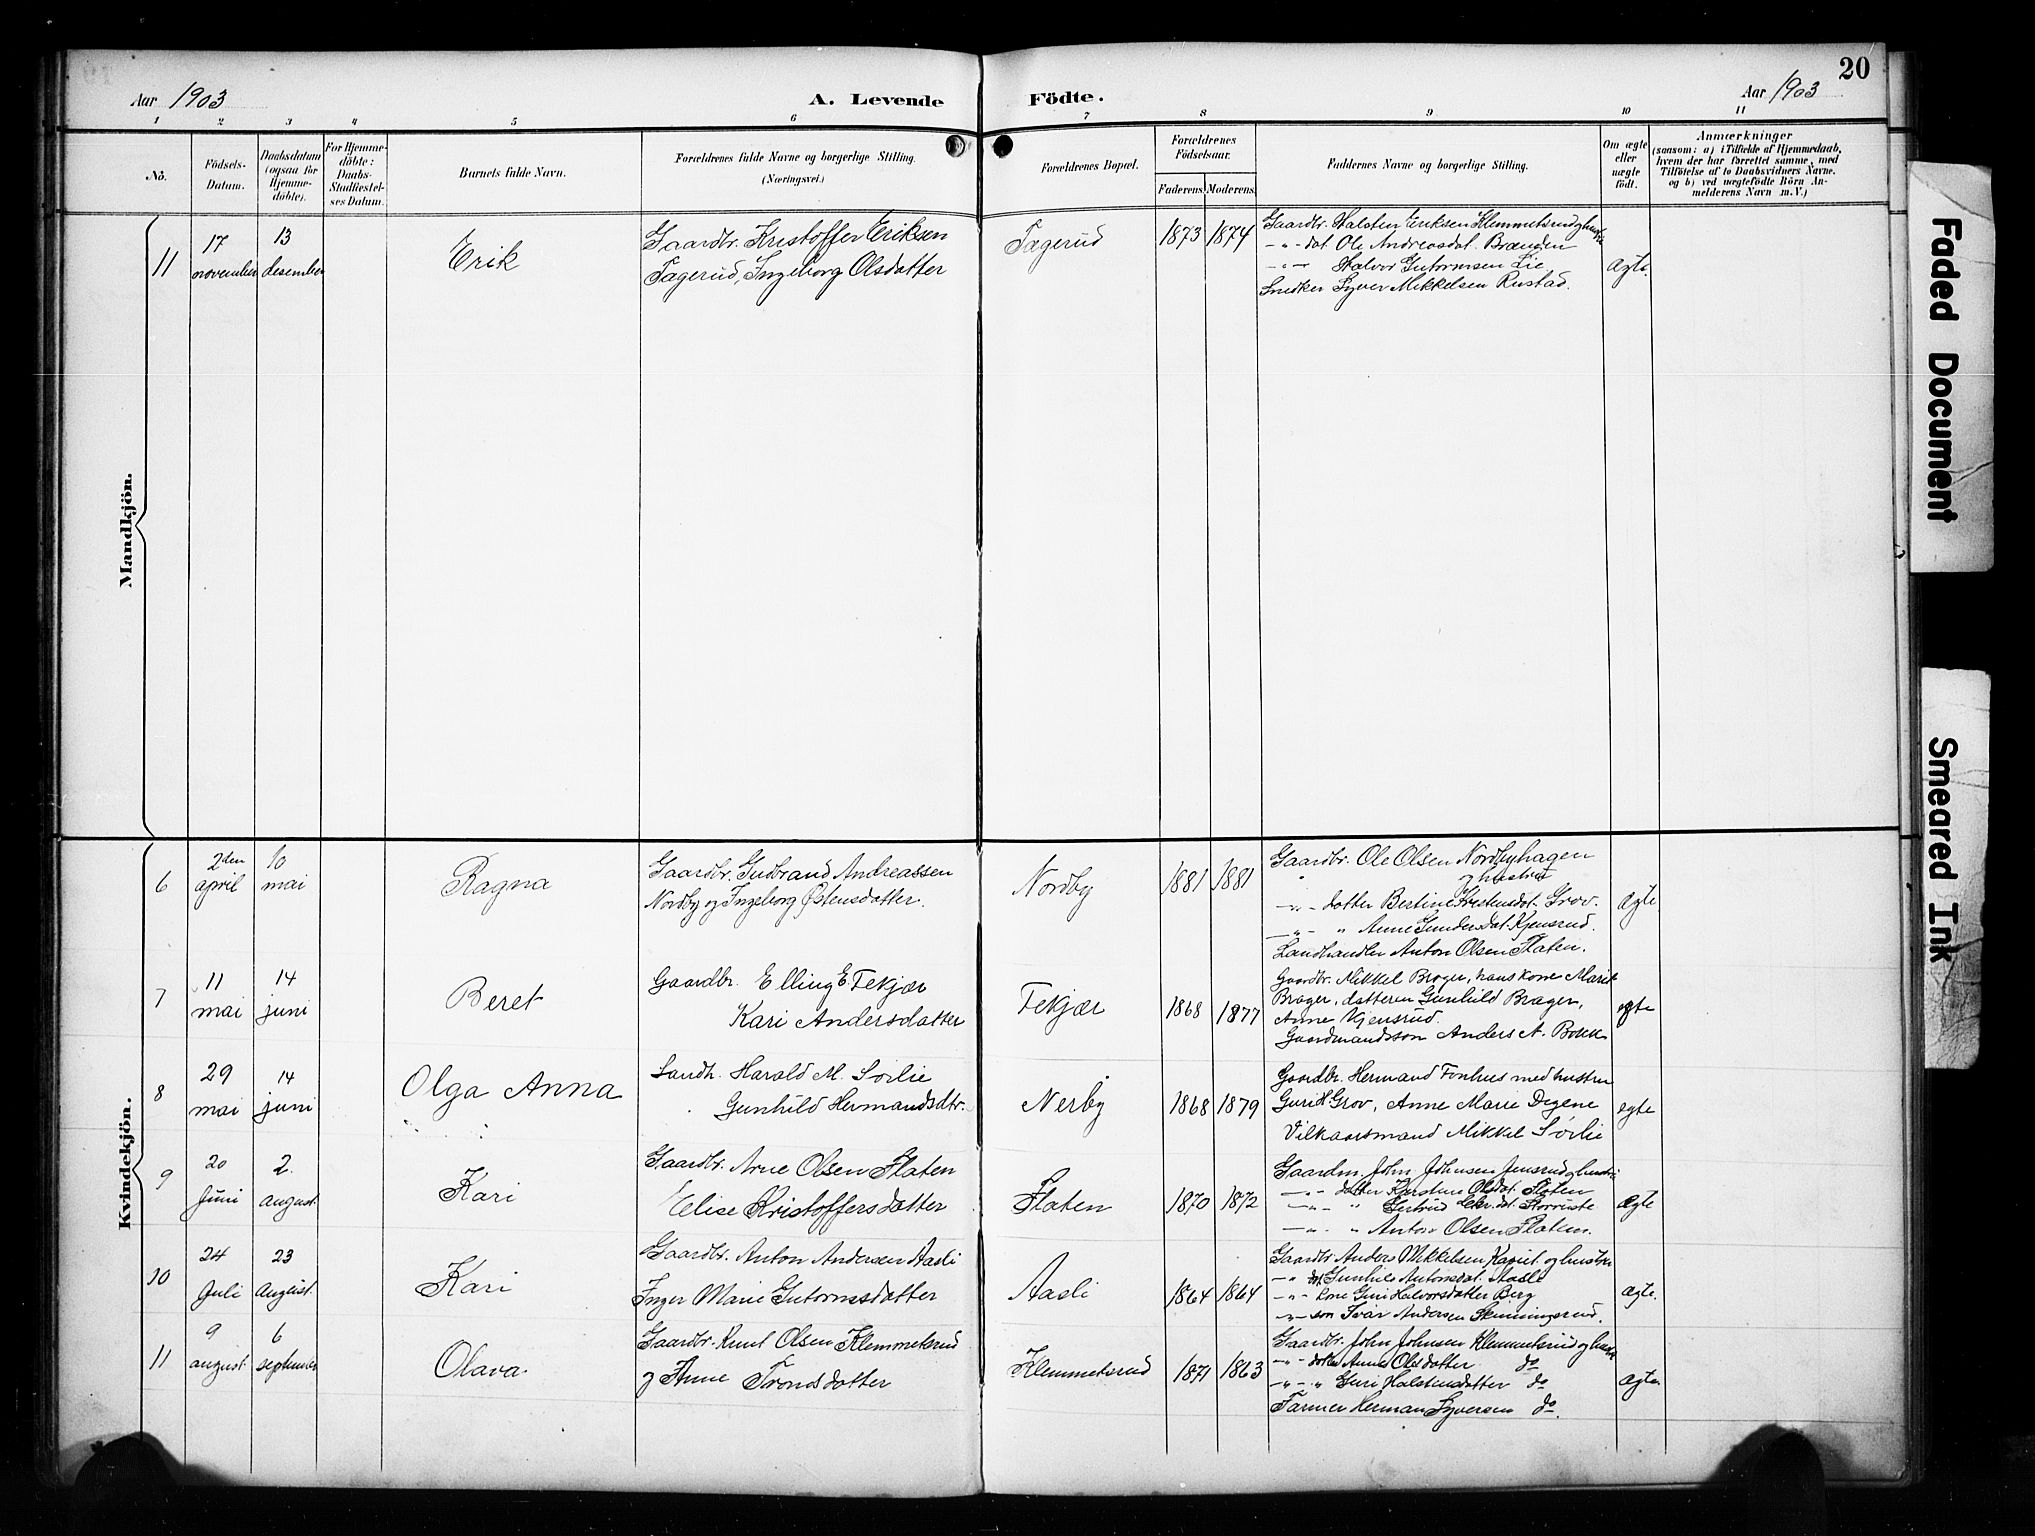 20
Aar 1903
A. Levende Födte.
Aar 1903
1 2 3 4 5 6 7 8 9 10 11
No.
Födsels-
Datum.
Daabsdatum
(ogsaa for
Hjemme-
døbte).
For Hjemme-
døbte:
Daabs-
Stadfæstel-
ses Datum.
Barnets fulde Navn.
Forældrenes fulde Navne og borgerlige Stilling.
(Næringsvei.)
Forældrenes Bopæl.
Forældrenes
Födselsaar.
Faderens. Moderens.
Faddernes Navne og borgerlige Stilling.
Om ægte
eller
uægte
født.
Anmærkninger
(saasom: a) i Tilfælde af Hjemmedaab,
hvem der har forrettet samme, med
Tilföielse af to Daabsvidners Navne.
og b) ved uægtefödte Börn An-
melderens Navn m. V.)
Mandkjön.
11
17
november
13
desember
Erik
Gaardbr. Kristoffer Eriksen
Fagerud, Ingeborg Olsdatter
Fagerud
1873 1874
Gaardbr. Halsten Eriksen Klemmetsrud og hustru
-"- dat. Ole Andreasdat. Brænden
-"- Halvor Gutormsen Lie
Snedker Syver Mikkelsen Rustad.
Ægte.
Kvindekjön.
6
2den
april
10
mai
Ragna
Gaardbr. Gudbrand Andreassen
Nordby og Ingeborg Østensdatter.
Nordby
1881 1881
Gaardbr. Ole Olsen Nordbyhagen
og hustru
-"- datter Bertine Kristensdat. Grov.
-"- " Anne Gundersdat. Kjensrud.
Landhandler Anton Olsen Flaten.
Ægte.
7
11
mai
14
juni
Beret
Gaardbr. Elling E. Fekjær
Kari Andersdatter
Fekjær
1868 1877
Gaardbr. Mikkel Brager, hans kone Marit
Brager, datteren Gunhild Brager,
Anne Kjensrud.
Gaardmandsson Anders A. Bakk
egte
8
29
mai
14
juni
Olga Anna
Landh. Harald M. Sørlie
Gunhild Hermandsdtr.
Nerby
1868 1879
Gaardbr. Hermand Fonhus med hustru
Guri H. Grov, Anne Marie Degene
Vilkaarsmand Mikkel Sørlie
egte
9
20
Juni
2.
august.
Kari
Gaardbr. Arne Olsen Flaten
Elise Kristoffersdatter
Flaten
1870 1872
Gaardm. John Johnsen Jensrud og hustru
-"- datter Karstine Olsdat. Flaten
-"- " Gertrud Storruste
-"- " Anton Olsen Flaten.
Ægte
10
24
Juli
23
August.
Kari
Gaardbr. Anton Andersen Aasli
Inger Marie Gutormsdatter
Aasli
1864 1864
Gaardbr. Anders Mikkelsen og hustru
-"- dat. Gunhild Antonsdat. Aasli
-"- Guri Halvorsdatter Berg
-"- son Ivar Andersen Skinningsrud.
Ægte.
11
9
august.
6
september
Olava
Gaardbr. Knut Olsen Klemmetsrud
og Anne Trondsdatter
Klemmetsrud
1871 1863
Gaardbr. John Johnsen Klemmetsrud og hust
-"- datter Anne Olsdatter do
-"- " Guri Halstensdatter do
Farmer Herman Syversen do.
Ægte.
Faded Document
Smeared Ink